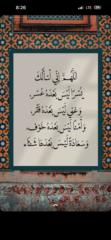 8:26
اللَّهُمَّ إِنِّي أَسْأَلُكَ
يُسْرًا لَيْسَ بَعْدَهُ عُسْرٌ،
وَغِنًى لَيْسَ بَعْدَهُ فَقْرٌ،
وَأَمْنًا لَيْسَ بَعْدَهُ خَوْفٌ،
وَسَعَادَةً لَيْسَ بَعْدَهَا شَقَاء